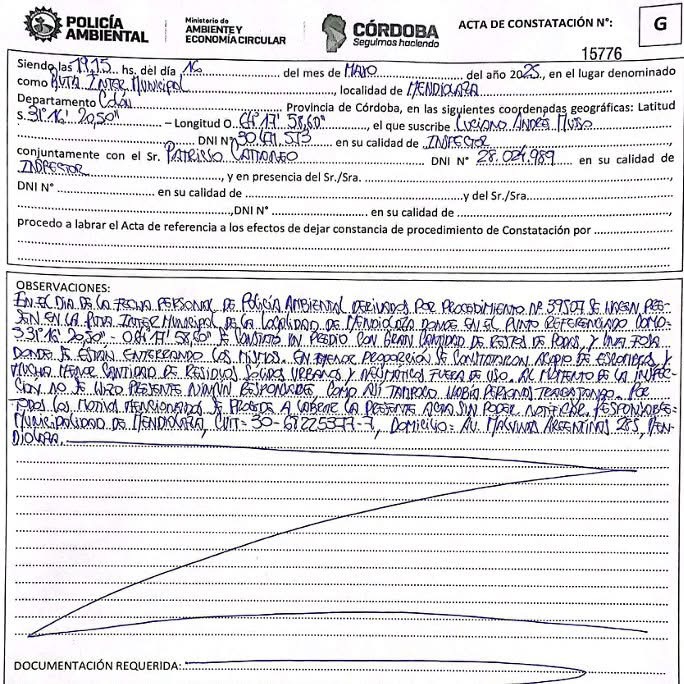 POLICÍA AMBIENTAL
Ministerio de AMBIENTE Y ECONOMÍA CIRCULAR
CÓRDOBA
Seguimos haciendo
ACTA DE CONSTATACIÓN N°:
G
15776
Siendo las 19,15 hs. del día 16 del mes de MAYO del año 2025, en el lugar denominado
como RUTA INTER MUNICIPAL, localidad de MENDIOLAZA
Departamento COLÓN Provincia de Córdoba, en las siguientes coordenadas geográficas: Latitud
S. 31°16' 20,50" – Longitud O. 64°17' 58,60", el que suscribe LUCIANO ANDRÉ
DNI N° 30.471.573 en su calidad de INSPECTOR
conjuntamente con el Sr. CATTANEO DNI N° 28.024.989 en su calidad de
INSPECTOR, y en presencia del Sr./Sra.
DNI N° en su calidad de y del Sr./Sra.
,DNI N° en su calidad de ,
procedo a labrar el Acta de referencia a los efectos de dejar constancia de procedimiento de Constatación por
OBSERVACIONES:
EN EL DIA DE LA FECHA PERSONAL DE POLICÍA AMBIENTAL DERIVADOS POR PROCEDIMIENTO N° 39507 SE HACEN PRE-
SEN EN LA RUTA INTER MUNICIPAL DE LA LOCALIDAD DE MENDIOLAZA DONDE EN EL PUNTO REFERENCIADO COMO:
S 31°16' 20,50" - O 64°17' 58,60" SE CONSTATO UN PREDIO CON GRAN CANTIDAD DE RESTOS DE PODAS, Y UNA FOSA
DONDE SE ESTÁN ENTERRANDO LOS MISMOS. EN MENOR PROPORCIÓN SE CONSTATARON ACOPIO DE ESCOMBROS Y
MUCHA MENOR CANTIDAD DE RESIDUOS SOLIDOS URBANOS Y NEUMATICOS FUERA DE USO. AL MOMENTO DE LA INSPEC-
CION NO SE HIZO PRESENTE NINGUN RESPONSABLE, COMO ASI TAMPOCO HABÍA PERSONAS TRABAJANDO. POR
TODOS LOS MOTIVOS MENSIONADOS SE PROCEDE A LABRAR LA PRESENTE ACTA SIN PODER NOTIFICAR. RESPONSABLE:
MUNICIPALIDAD DE MENDIOLAZA, CUIT: 30-67225377-7, DOMICILIO: AV. MALVINAS ARGENTINAS 285, MEN-
DIOLAZA.
DOCUMENTACIÓN REQUERIDA: